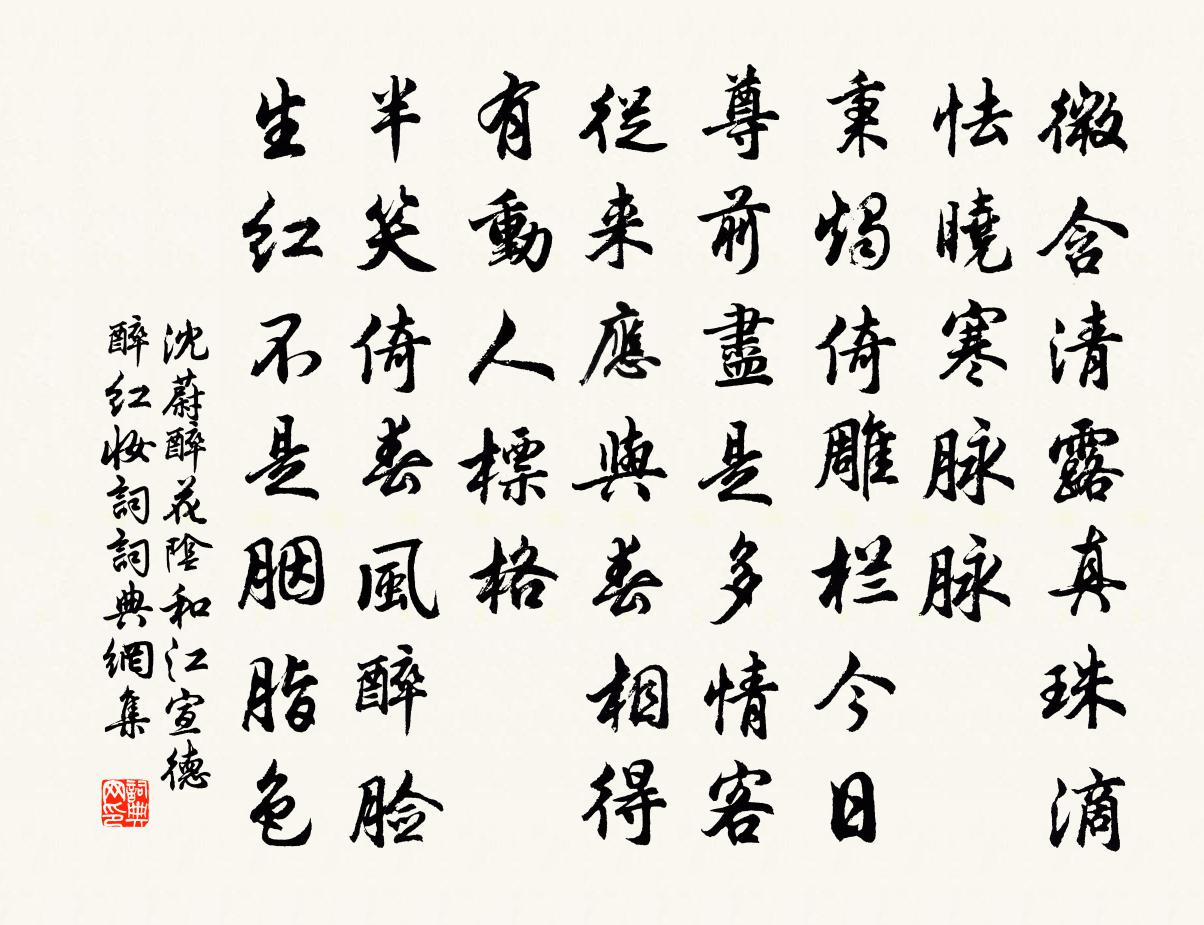 微含清露真珠滴
怯曉寒脉脉
秉燭倚雕栏今日
尊前盡是多情客
從来應與春相得
有動人標格
半笑倚春風醉脸
生红不是胭脂色
沈蔚醉花陰和江宣德
醉红妆詞詞典網集
詞典网印